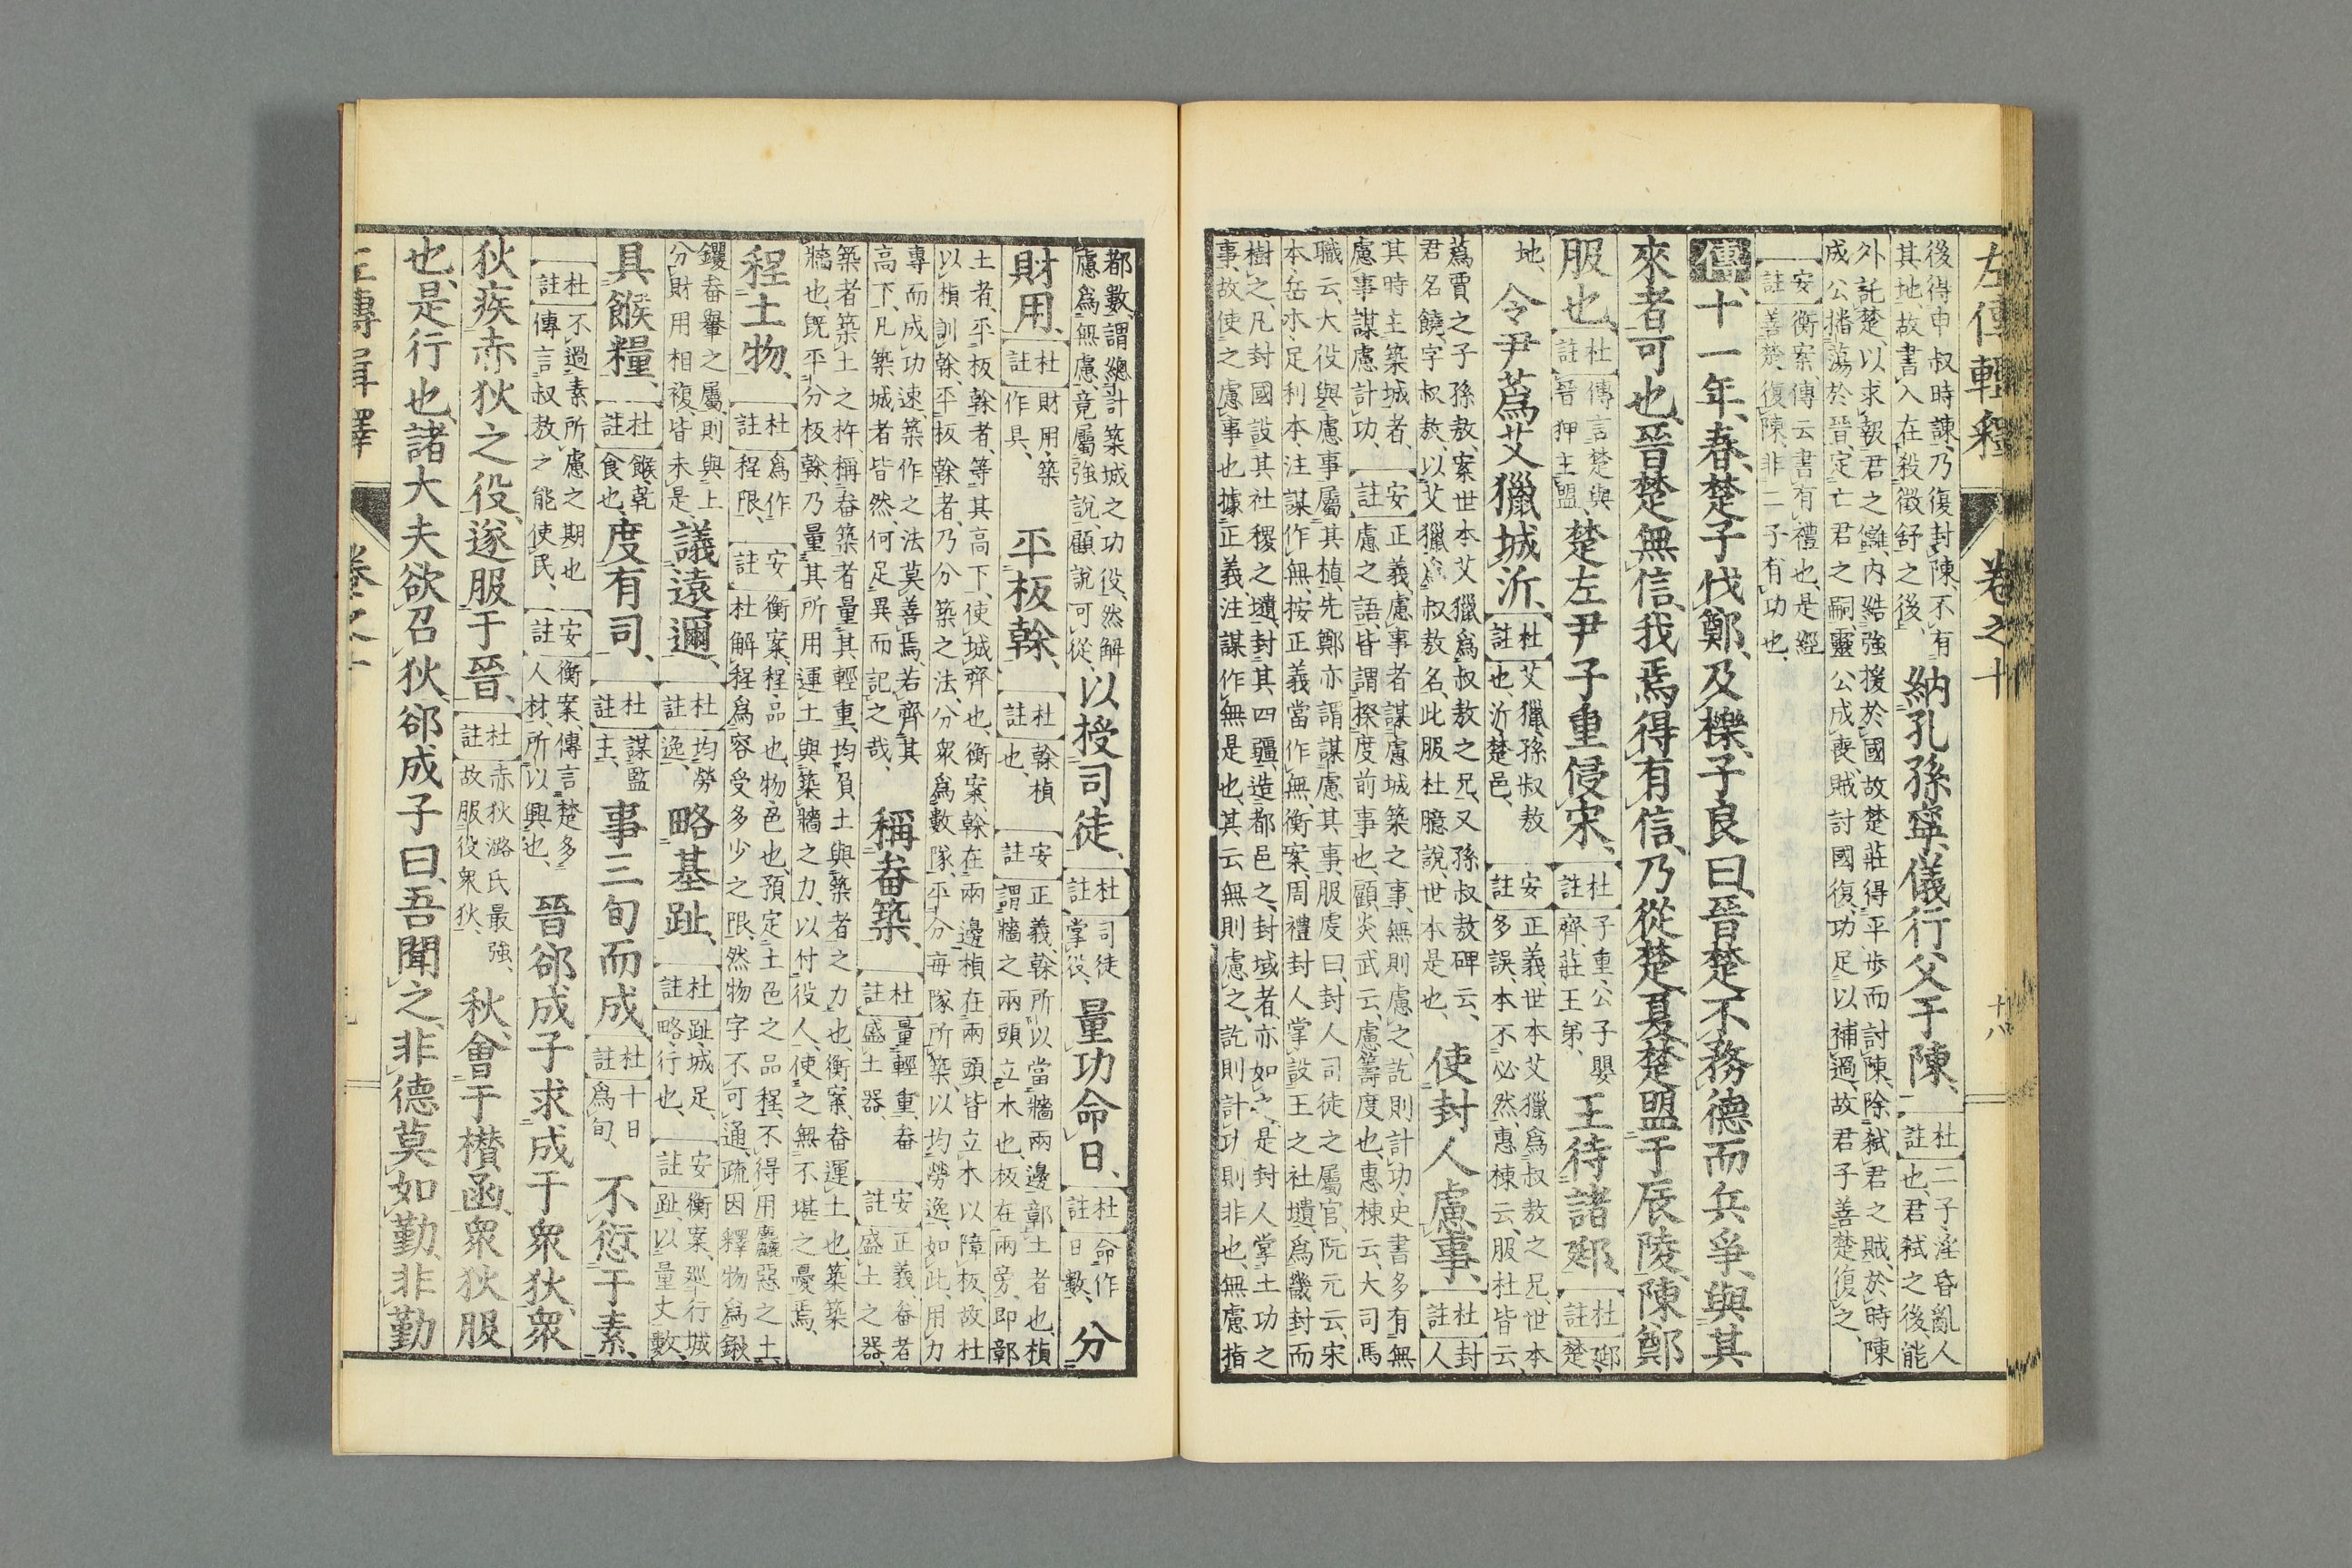 左傳輯釋 卷之十 十八
後得申叔時諫、乃復封陳、不有其地、故書入在殺徵舒之後、 納孔孫寧儀行父于陳、 杜註 二子、淫昏亂人也、君弑之後、能
外託楚、以求報君之讎、內結強援於國、故楚莊得平步而討陳、除弑君之賊、於時陳成公播蕩於晉、定亡君之嗣、靈公成喪、賊討國復、功足以補過、故君子善楚復之、
安註 衡案、傳云、書有禮也、是經善楚復陳、非二子有功也、
傳、十一年、春、楚子伐鄭、及櫟、子良曰、晉楚不務德而兵爭、與其
來者可也、晉楚無信、我焉得有信、乃從楚、夏、楚盟于辰陵、陳鄭
服也、 杜註 傳言楚與晉狎主盟、 楚左尹子重侵宋、 杜註 子重、公子嬰齊、莊王弟、 王待諸郔、 杜註 郔、楚
地、 令尹蔿艾獵城沂、 杜註 艾獵、孫叔敖也、沂、楚邑、 安註 正義、世本艾獵爲叔敖之兄、世本多誤、本不必然、惠棟云、服杜皆云、
蔿賈之子孫敖、案世本、艾獵爲叔敖之兄、又孫叔敖碑云、君名饒、字叔敖、以艾獵爲叔敖名、此服杜臆說、世本是也、 使封人慮事、 杜註 封人
其時主築城者、慮事謀慮計功、 安註 正義、慮事者、謀慮城築之事、無則慮之、訖則計功、史書多有無慮之語、皆謂揆度前事也、顧炎武云、慮、籌度也、惠棟云、大司馬
職云、大役與慮事屬其植、先鄭亦謂謀慮其事、服虔曰、封人、司徒之屬官、阮元云、宋本岳本、足利本、注謀作無、按正義當作無、衡案、周禮封人掌設王之社壝、爲畿封而
樹之、凡封國設其社稷之壝、封其四疆、造都邑之封域者、亦如之、是封人掌土功之事、故使之慮事也、據正義、注謀作無是也、其云無則慮之、訖則計功則非也、無慮指
都數、謂總計築城之功役、然解慮爲無慮、竟屬強說、顧說可從、 以授司徒、 杜註 司徒掌役、 量功命日、 杜註 命作日數、 分
財用、 杜註 財用、築作具、 平板榦、 杜註 榦、楨也、 安註 正義、榦、所以當牆兩邊彰土者也、楨、謂牆之兩頭立木也、板在兩旁、即彰
土者、平板榦者、等其高下、使城齊也、衡案、榦在兩邊、楨在兩頭、皆立木以障板、故杜以楨訓榦、平板榦者、乃分築之法、分衆爲數隊、平分每隊所築、以均勞逸、如此、用力
專而成功速、築作之法莫善焉、若齊其高下、凡築城者皆然、何足異而記之哉、 稱畚築、 杜註 量輕重、畚盛土器、 安註 正義、畚者盛土之器、
築者築土之杵、稱畚築者、量其輕重、均負土與築者之力也、衡案、畚運土也、築築牆也、既平分板榦、乃量其所用運土與築牆之力、以付役人、使之無不堪之憂焉、
程土物、 杜註 爲作程限、 安註 衡案、程、品也、物、色也、預定土色之品程、不得用麤惡之土、杜解程爲容受多少之限、然物字不可通、疏因釋物爲鍬
钁畚轝之屬、則與上分財用相複、皆未是、 議遠邇、 杜註 均勞逸、 略基趾、 杜註 趾、城足、略、行也、 安註 衡案、巡行城趾、以量丈數、
具餱糧、 杜註 餱、乾食也、 度有司、 杜註 謀監主、 事三旬而成、 杜註 十日爲旬、 不愆于素、
杜註 不過素所慮之期也、傳言叔敖之能使民、 安註 衡案、傳言楚多人材、所以興也、 晉郤成子求成于衆狄、衆
狄疾赤狄之役、遂服于晉、 杜註 赤狄潞氏最強、故服役衆狄、 秋、會于欑函、衆狄服
也、是行也、諸大夫欲召狄、郤成子曰、吾聞之、非德莫如勤、非勤
左傳輯釋 卷之十